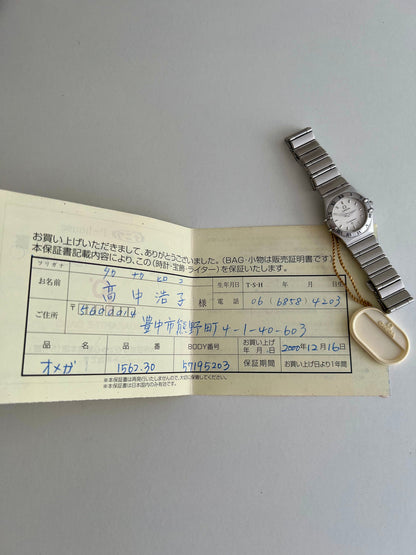 お買い上げいただきまして、ありがとうございました。(BAG・小物は販売証明書です)
本保証書記載内容により、この(時計・宝飾・ライター)を保証いたします。
フリガナ タカ ナカ ヒロコ 生年月日 T・S・H 年 月 日生
お名前 高中浩子 様 電話 06(6858)4203
ご住所 〒
豊中市熊野町4-1-40-603
品名 品番 BODY番号 お買い上げ年月日 2000年12月16日
オメガ 1562.30 57195203 保証期間 お買い上げ日より1年間
※本保証書は再発行いたしませんので、大切に保管してください。
※本保証書は日本国内のみ有効です。